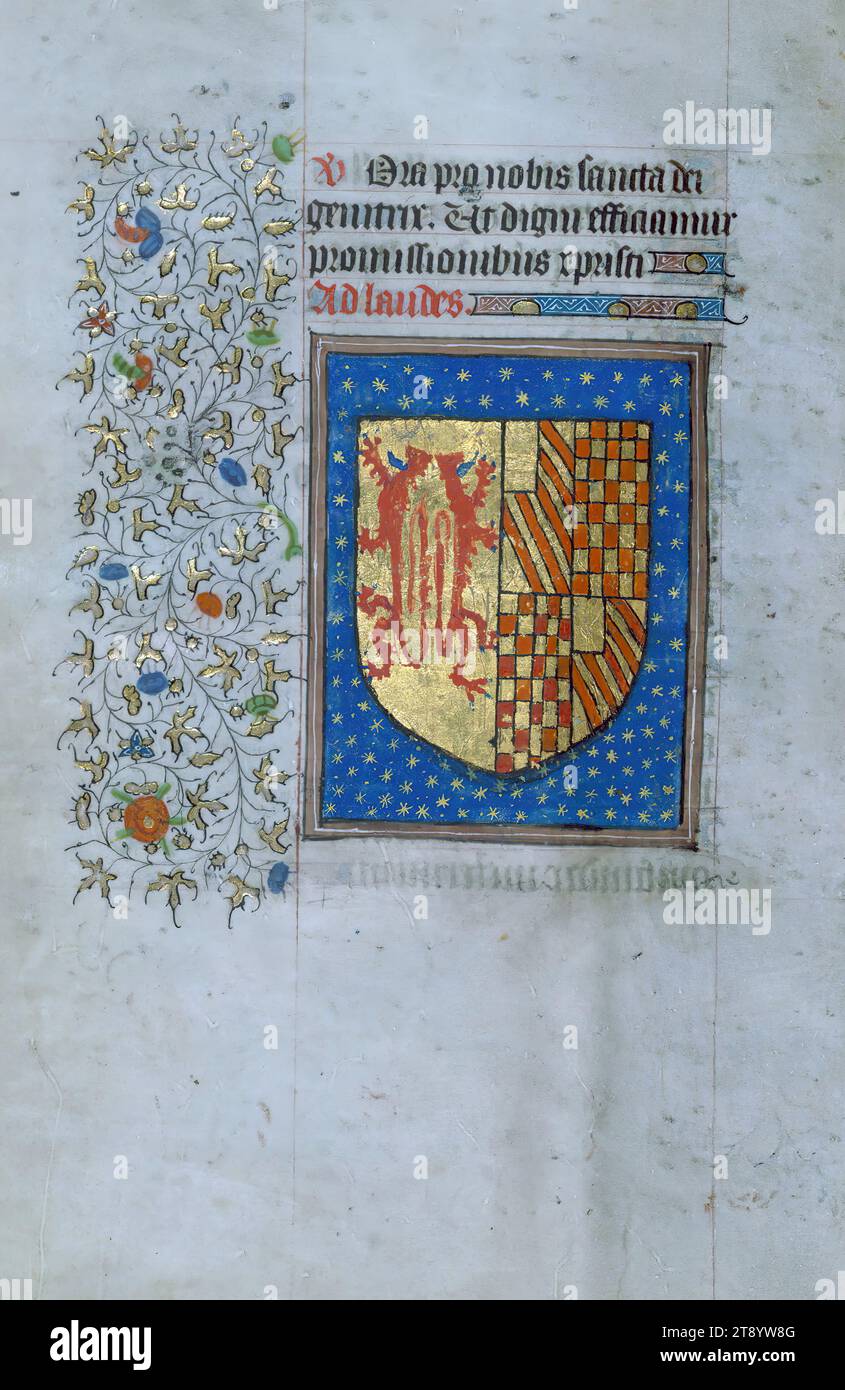 V Ora pro nobis sancta dei
genitrix. Ut digni efficiamur
promissionibus xpristi
Ad laudes.
alamy
Image ID: 2T8YW8G
www.alamy.com